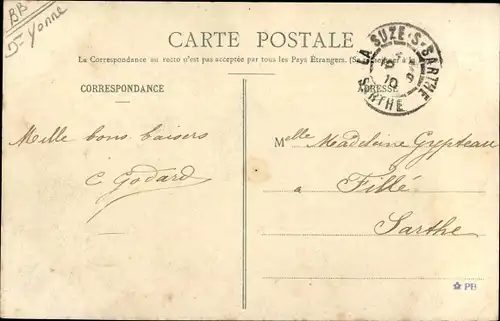 BB
Dt Yonne
CARTE POSTALE
La Correspondance au recto n'est pas acceptée par tous les Pays Étrangers. (Se renseigner à la
LA SUZE-S-SARTHE
SARTHE
CORRESPONDANCE
ADRESSE
Mille bons baisers
C Godard
Melle Madeleine
a Fillé
Sarthe
PB